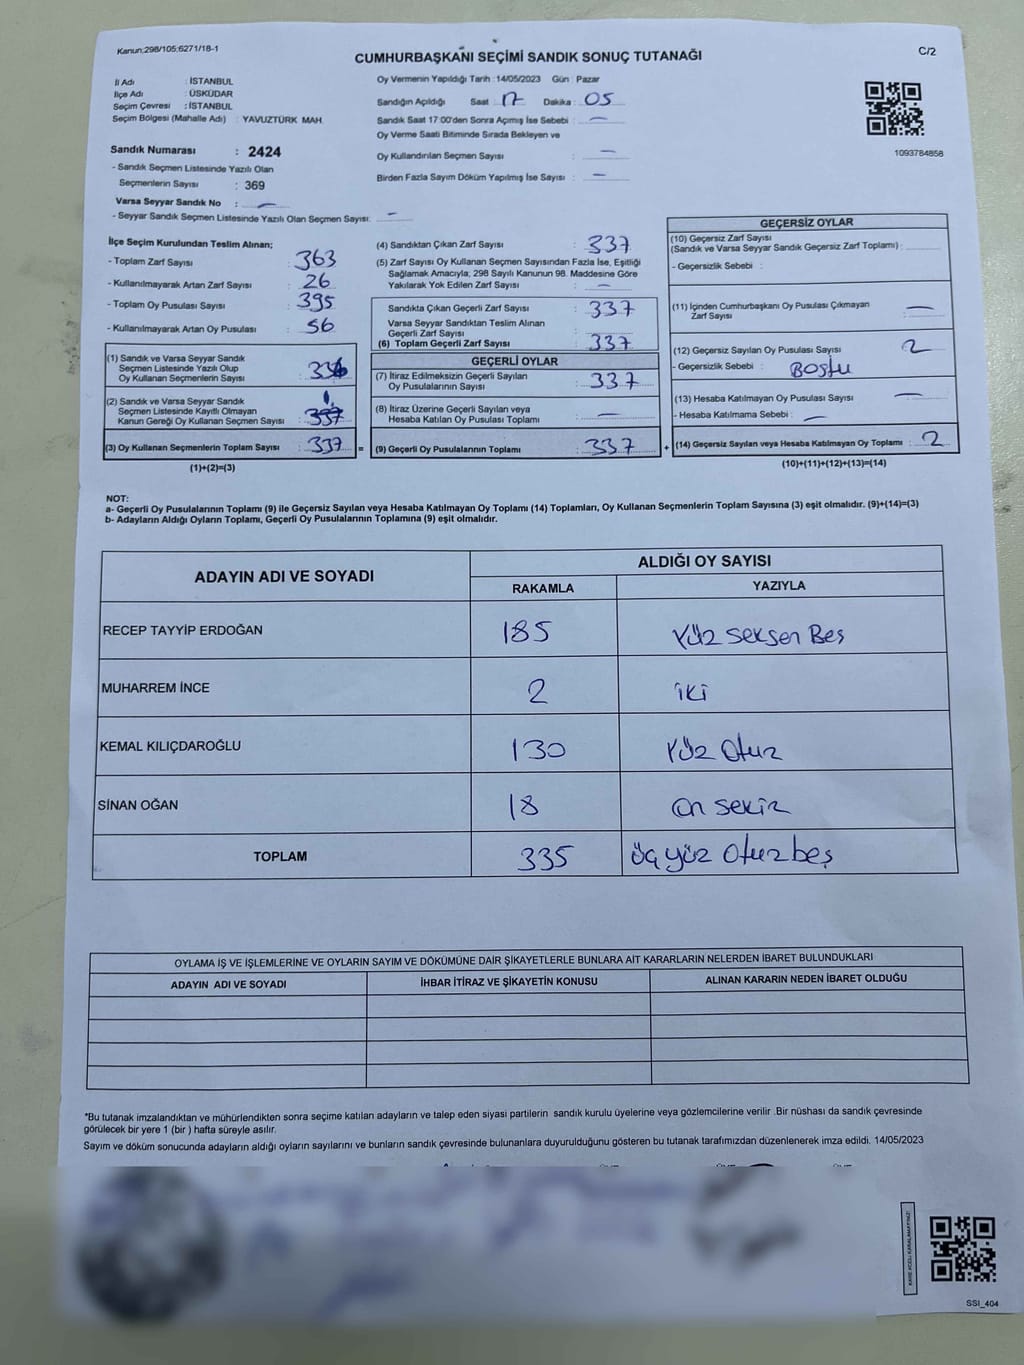 Kanun;298/105;6271/18-1
CUMHURBAŞKANI SEÇİMİ SANDIK SONUÇ TUTANAĞI
C/2
İl Adı : İSTANBUL
İlçe Adı : ÜSKÜDAR
Seçim Çevresi : İSTANBUL
Seçim Bölgesi (Mahalle Adı) : YAVUZTÜRK MAH.
Sandık Numarası : 2424
- Sandık Seçmen Listesinde Yazılı Olan
Seçmenlerin Sayısı : 369
Varsa Seyyar Sandık No : —
- Seyyar Sandık Seçmen Listesinde Yazılı Olan Seçmen Sayısı: —
Oy Vermenin Yapıldığı Tarih : 14/05/2023 Gün : Pazar
Sandığın Açıldığı Saat : 17 Dakika : 05
Sandık Saat 17:00'den Sonra Açımış İse Sebebi : —
Oy Verme Saati Bitiminde Sırada Bekleyen ve
Oy Kullandırılan Seçmen Sayısı : —
Birden Fazla Sayım Döküm Yapılmış İse Sayısı : —
1093784858
İlçe Seçim Kurulundan Teslim Alınan;
- Toplam Zarf Sayısı : 363
- Kullanılmayarak Artan Zarf Sayısı : 26
- Toplam Oy Pusulası Sayısı : 395
- Kullanılmayarak Artan Oy Pusulası : 56
(1) Sandık ve Varsa Seyyar Sandık
Seçmen Listesinde Yazılı Olup
Oy Kullanan Seçmenlerin Sayısı : 336
(2) Sandık ve Varsa Seyyar Sandık
Seçmen Listesinde Kayıtlı Olmayan
Kanun Gereği Oy Kullanan Seçmen Sayısı : 1
337
(3) Oy Kullanan Seçmenlerin Toplam Sayısı : 337 =
(1)+(2)=(3)
(4) Sandıktan Çıkan Zarf Sayısı : 337
(5) Zarf Sayısı Oy Kullanan Seçmen Sayısından Fazla İse, Eşitliği
Sağlamak Amacıyla; 298 Sayılı Kanunun 98. Maddesine Göre
Yakılarak Yok Edilen Zarf Sayısı : —
Sandıkta Çıkan Geçerli Zarf Sayısı : 337
Varsa Seyyar Sandıktan Teslim Alınan
Geçerli Zarf Sayısı :
(6) Toplam Geçerli Zarf Sayısı : 337
GEÇERLİ OYLAR
(7) İtiraz Edilmeksizin Geçerli Sayılan
Oy Pusulalarının Sayısı : 337
(8) İtiraz Üzerine Geçerli Sayılan veya
Hesaba Katılan Oy Pusulası Toplamı : —
(9) Geçerli Oy Pusulalarının Toplamı : 337 +
GEÇERSİZ OYLAR
(10) Geçersiz Zarf Sayısı
(Sandık ve Varsa Seyyar Sandık Geçersiz Zarf Toplamı) :
- Geçersizlik Sebebi :
(11) İçinden Cumhurbaşkanı Oy Pusulası Çıkmayan
Zarf Sayısı : —
(12) Geçersiz Sayılan Oy Pusulası Sayısı : 2
- Geçersizlik Sebebi : BOŞTU
(13) Hesaba Katılmayan Oy Pusulası Sayısı : —
- Hesaba Katılmama Sebebi : —
(14) Geçersiz Sayılan veya Hesaba Katılmayan Oy Toplamı : 2
(10)+(11)+(12)+(13)=(14)
NOT:
a- Geçerli Oy Pusulalarının Toplamı (9) ile Geçersiz Sayılan veya Hesaba Katılmayan Oy Toplamı (14) Toplamları, Oy Kullanan Seçmenlerin Toplam Sayısına (3) eşit olmalıdır. (9)+(14)=(3)
b- Adayların Aldığı Oyların Toplamı, Geçerli Oy Pusulalarının Toplamına (9) eşit olmalıdır.
ADAYIN ADI VE SOYADI
ALDIĞI OY SAYISI
RAKAMLA YAZIYLA
RECEP TAYYİP ERDOĞAN 185 Yüz seksen Beş
MUHARREM İNCE 2 iki
KEMAL KILIÇDAROĞLU 130 Yüz Otuz
SİNAN OĞAN 18 On sekiz
TOPLAM 335 üç yüz Otuz beş
OYLAMA İŞ VE İŞLEMLERİNE VE OYLARIN SAYIM VE DÖKÜMÜNE DAİR ŞİKAYETLERLE BUNLARA AİT KARARLARIN NELERDEN İBARET BULUNDUKLARI
ADAYIN ADI VE SOYADI İHBAR İTİRAZ VE ŞİKAYETİN KONUSU ALINAN KARARIN NEDEN İBARET OLDUĞU
*Bu tutanak imzalandıktan ve mühürlendikten sonra seçime katılan adayların ve talep eden siyasi partilerin sandık kurulu üyelerine veya gözlemcilerine verilir .Bir nüshası da sandık çevresinde
görülecek bir yere 1 (bir ) hafta süreyle asılır.
Sayım ve döküm sonucunda adayların aldığı oyların sayılarını ve bunların sandık çevresinde bulunanlara duyurulduğunu gösteren bu tutanak tarafımızdan düzenlenerek imza edildi. 14/05/2023
SSI_404